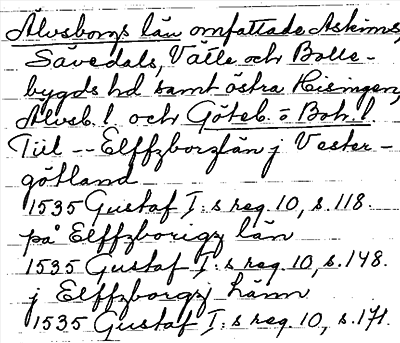 Älvsborgs län omfattade Askims,
Sävedals, Vätle och Bolle-
bygds hd samt östra Hisingen,
Älvsb. l och Göteb. o Boh. l
Till -- Elffzborgzlän j Vester-
götland
1535 Gustaf I:s reg. 10, s. 118.
på Elffzborigz län
1535 Gustaf I:s reg. 10, s. 148.
j Elffzborgzj länn
1535 Gustaf I:s reg. 10, s. 171.